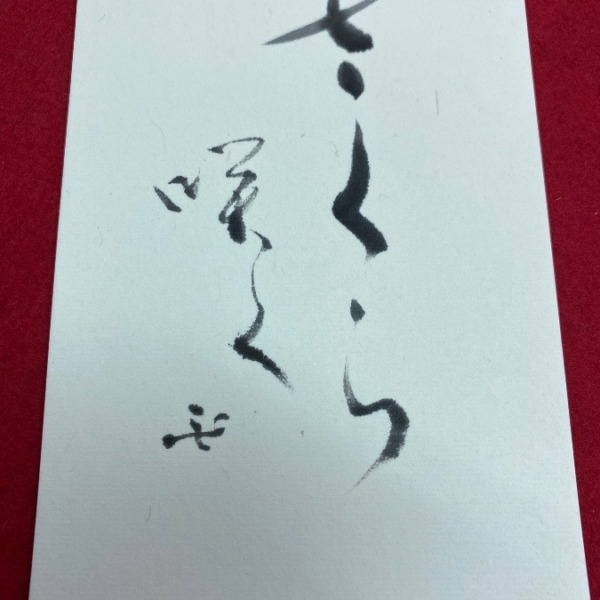 さくら
咲く